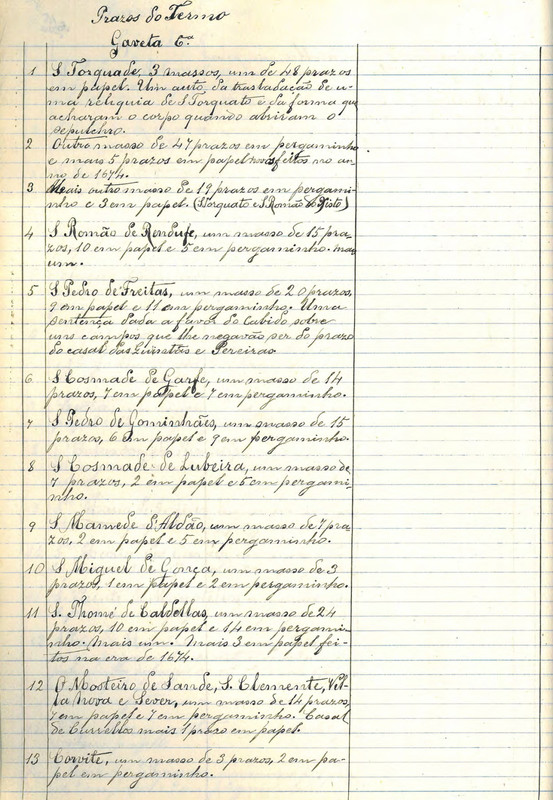 Prazos do Termo
Gaveta 6.a
1 S Torquade, 3 massos, um de 48 prazos
em papel. Um auto da trasladação de u-
ma reliquia de S Torquato e da forma que
acharam o corpo quando abriram o
sepulchro.
2 Outro masso de 47 prazos em pergaminho
e mais 5 prazos em papel feitos no an-
no de 1674.
3 Mais outro masso de 19 prazos em pergami-
nho e 3 em papel. (S Torquato e S Romão)
4 S Romão de Rendufe, um masso de 15 pra-
zos, 10 em papel e 5 em pergaminho. mais
um.
5 S Pedro de Freitas, um masso de 20 prazos,
9 em papel e 11 em pergaminho. Uma
sentença dada a favor do Cabido sobre
uns campos que lhe negavão ser do prazo
do casal das Quintãs e Pereirao
6 S Cosmade de Garfe, um masso de 14
prazos, 7 em papel e 7 em pergaminho.
7 S Pedro de Gominhães, um masso de 15
prazos, 6 em papel e 9 em pergaminho.
8 S Cosmade de Lubeira, um masso de
7 prazos, 2 em papel e 5 em pergami-
nho.
9 S Mamede d'Aldão, um masso de 7 pra-
zos, 2 em papel e 5 em pergaminho.
10 S Miguel de Gonça, um masso de 3
prazos, 1 em papel e 2 em pergaminho.
11 S. Thomé de Caldellas, um masso de 24
prazos, 10 em papel e 14 em pergami-
nho. Mais um. Mais 3 em papel fei-
tos na era de 1674.
12 O Mosteiro de Sande, S. Clemente, Vil-
la Nova e Sever, um masso de 14 prazos,
7 em papel e 7 em pergaminho. Casal
de mais 1 prazo em papel.
13 Corvite, um masso de 3 prazos, 2 em pa-
pel em pergaminho.